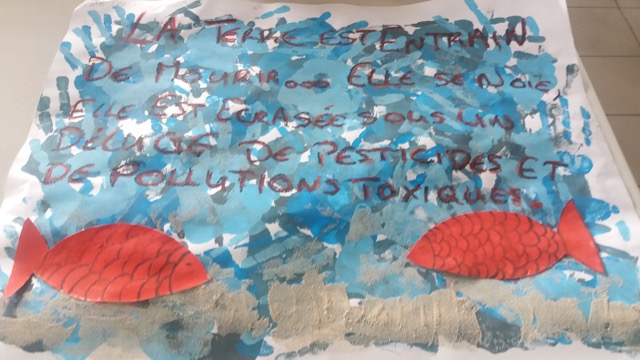 LA TERRE EST ENTRAIN
DE MOURIR... ELLE SE NOIE
ELLE EST ÉCRASÉE SOUS UN
DÉLUGE DE PESTICIDES ET
DE POLLUTIONS TOXIQUES.